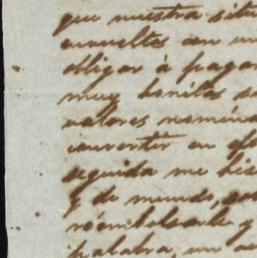 que nuestra situ
envueltos con un
obligar á pagar
muy bonita su
valores nomina
convertir en efe
seguida me his
y de mundo,
reembolsarle y
palabra, un